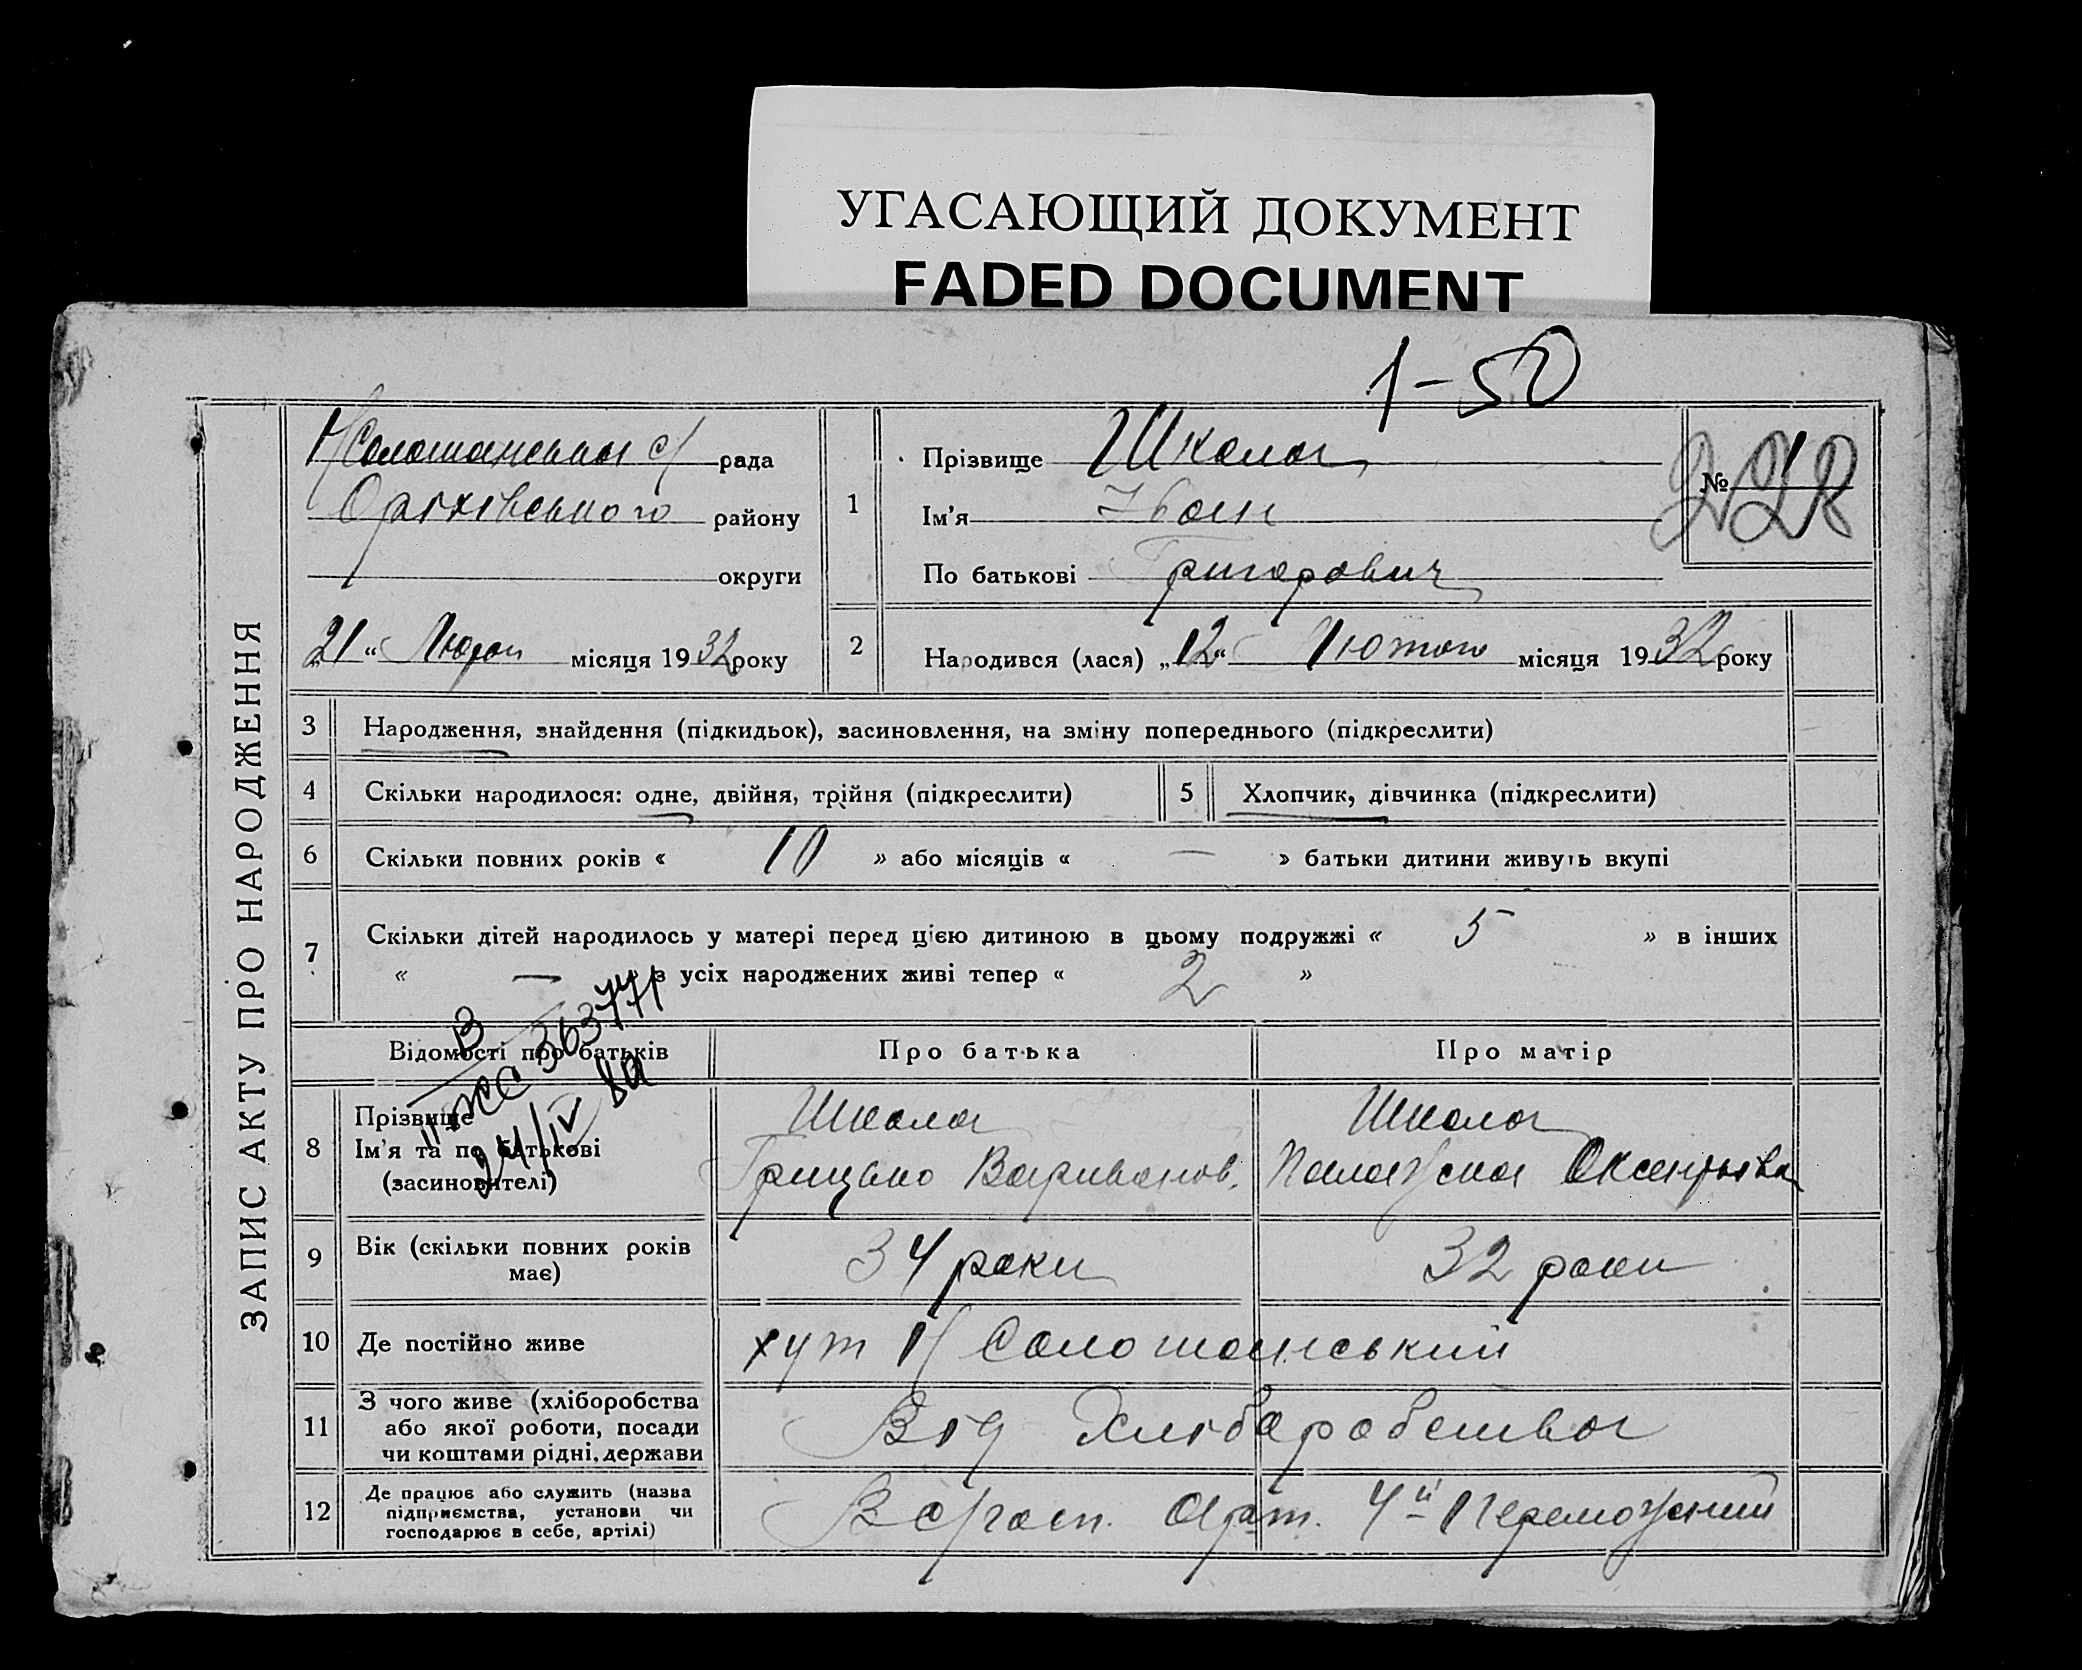 УГАСАЮЩИЙ ДОКУМЕНТ
FADED DOCUMENT
1-50
ЗАПИС АКТУ ПРО НАРОДЖЕННЯ
Н/Солошанська с/ рада
Оріхівського району
округи
21 " Лютого місяця 1932 року
1
Прізвище Школа
Ім'я Іван
По батькові Григорович
№ 1
228
2
Народився (лася) „12" Лютого місяця 1932 року
3 Народження, знайдення (підкидьок), засиновлення, на зміну попереднього (підкреслити)
4 Скільки народилося: одне, двійня, трійня (підкреслити)
5 Хлопчик, дівчинка (підкреслити)
6 Скільки повних років « 10 » або місяців « — » батьки дитини живуть вкупі
7 Скільки дітей народилось у матері перед цією дитиною в цьому подружжі « 5 » в інших
« — » з усіх народжених живі тепер « 2 »
Відомості про батьків
Про батька
Про матір
8 Прізвище
Ім'я та по батькові
(засиновителі)
Школа
Грицько
Школа
Палажка
9 Вік (скільки повних років
має)
34 роки
32 роки
10 Де постійно живе
хут Н/Солошанський
11 З чого живе (хліборобства
або якої роботи, посади
чи коштами рідні, держави
Від Хліборобства
12 Де працює або служить (назва
підприємства, установи чи
господарює в себе, артілі)
В с/госп. Арт. 4й Переможний